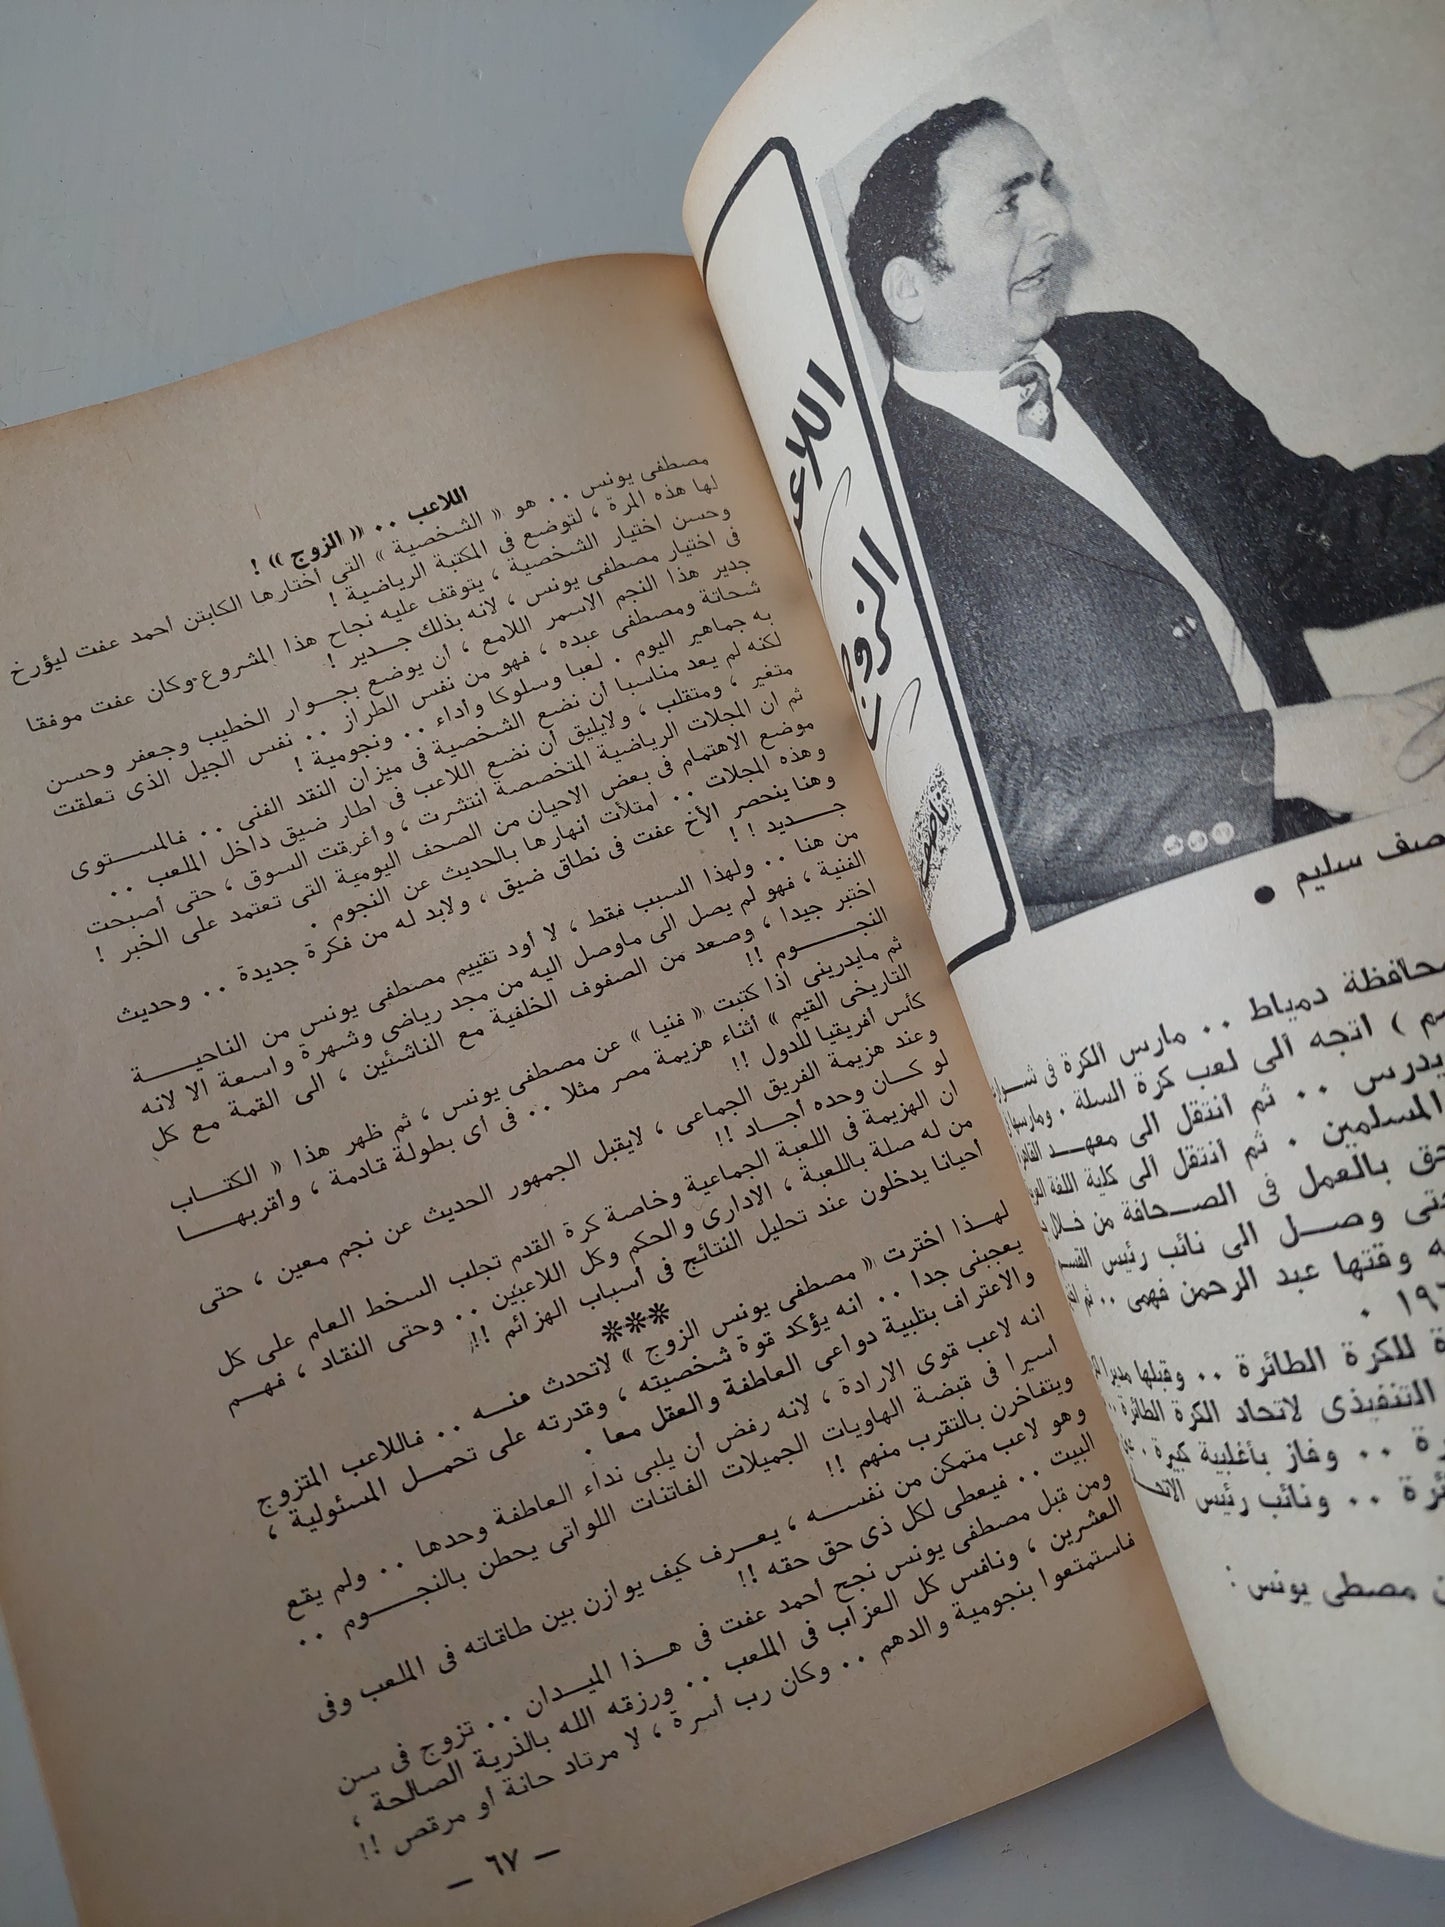 اللاعب
الزوج
ناصف
صف سليم ●
محافظة دمياط . . مارس الكرة فى
اتجه الى لعب كرة السلة . ومارسها
يدرس . . ثم انتقل الى معهد القاهرة
المسلمين . ثم انتقل الى كلية اللغة
بالعمل فى الصحافة من خلال
وصل الى نائب رئيس
وقتها عبد الرحمن فهمى . . ثم
للكرة الطائرة . . وقبلها
التنفيذى لاتحاد الكرة الطائرة . .
. . وفاز بأغلبية كبيرة .
. . ونائب رئيس
مصطى يونس :
اللاعب . . « الزوج » !
مصطفى يونس . . هو « الشخصية » التي أختارها الكابتن أحمد عفت ليؤرخ
لها هذه المرة ، لتوضع فى المكتبة الرياضية !
وحسن اختيار الشخصية ، يتوقف عليه نجاح هذا المشروع . وكان عفت موفقا
فى اختيار مصطفى يونس ، لانه بذلك جدير !
جدير هذا النجم الاسمر اللامع ، أن يوضع بجوار الخطيب وجعفر وحسن
شحاتة ومصطفى عبده ، فهو من نفس الطراز . . نفس الجيل الذى تعلقت
به جماهير اليوم . لعبا وسلوكا وأداء . . ونجومية !
لكنه لم يعد مناسبا أن نضع الشخصية فى ميزان النقد الفنى . . فالمستوى
متغير ، ومتقلب ، ولايليق أن نضع اللاعب فى اطار ضيق داخل الملعب . .
ثم ان المجلات الرياضية المتخصصة انتشرت ، واغرقت السوق ، حتى أصبحت
موضع الاهتمام فى بعض الاحيان من الصحف اليومية التى تعتمد على الخبر !
وهذه المجلات . . امتلأت انهارها بالحديث عن النجوم .
وهنا ينحصر الأخ عفت فى نطاق ضيق ، ولابد له من فكرة جديدة . . وحديث
جديد ! !
من هنا . . ولهذا السبب فقط ، لا أود تقييم مصطفى يونس من الناحية
الفنية ، فهو لم يصل الى ماوصل اليه من مجد رياضى وشهرة واسعة الا لانه
اختبر جيدا ، وصعد من الصفوف الخلفية مع الناشئين ، الى القمة مع كل
النجوم !!
ثم مايدرينى اذا كتبت « فنيا » عن مصطفى يونس ، ثم ظهر هذا « الكتاب
التاريخى القيم » أثناء هزيمة مصر مثلا . . فى أى بطولة قادمة ، وأقربها
كأس أفريقيا للدول !!
وعند هزيمة الفريق الجماعى ، لايقبل الجمهور الحديث عن نجم معين ، حتى
لو كان وحده أجاد !!
ان الهزيمة فى اللعبة الجماعية وخاصة كرة القدم تجلب السخط العام على كل
من له صلة باللعبة ، الادارى والحكم وكل اللاعبين . . وحتى النقاد ، فهم
أحيانا يدخلون عند تحليل النتائج فى أسباب الهزائم !!
***
لهذا اخترت « مصطفى يونس الزوج » لاتحدث عنه . . فاللاعب المتزوج
يعجبنى جدا . . انه يؤكد قوة شخصيته ، وقدرته على تحمل المسئولية ،
والاعتراف بتلبية دواعى العاطفة والعقل معا .
انه لاعب قوى الارادة ، لانه رفض أن يلبى نداء العاطفة وحدها . . ولم يقع
اسيرا فى قبضة الهاويات الجميلات الفاتنات اللواتى يحطن بالنجوم . .
ويتفاخرن بالتقرب منهم !!
وهو لاعب متمكن من نفسه ، يعرف كيف يوازن بين طاقاته فى الملعب وفى
البيت . . فيعطى لكل ذى حق حقه !!
ومن قبل مصطفى يونس نجح أحمد عفت فى هذا الميدان . . تزوج فى سن
العشرين ، ونافس كل العزاب فى الملعب . . ورزقه الله بالذرية الصالحة ،
فاستمتعوا بنجومية والدهم . . وكان رب أسرة ، لا مرتاد حانة أو مرقص !!
— ٦٧ —